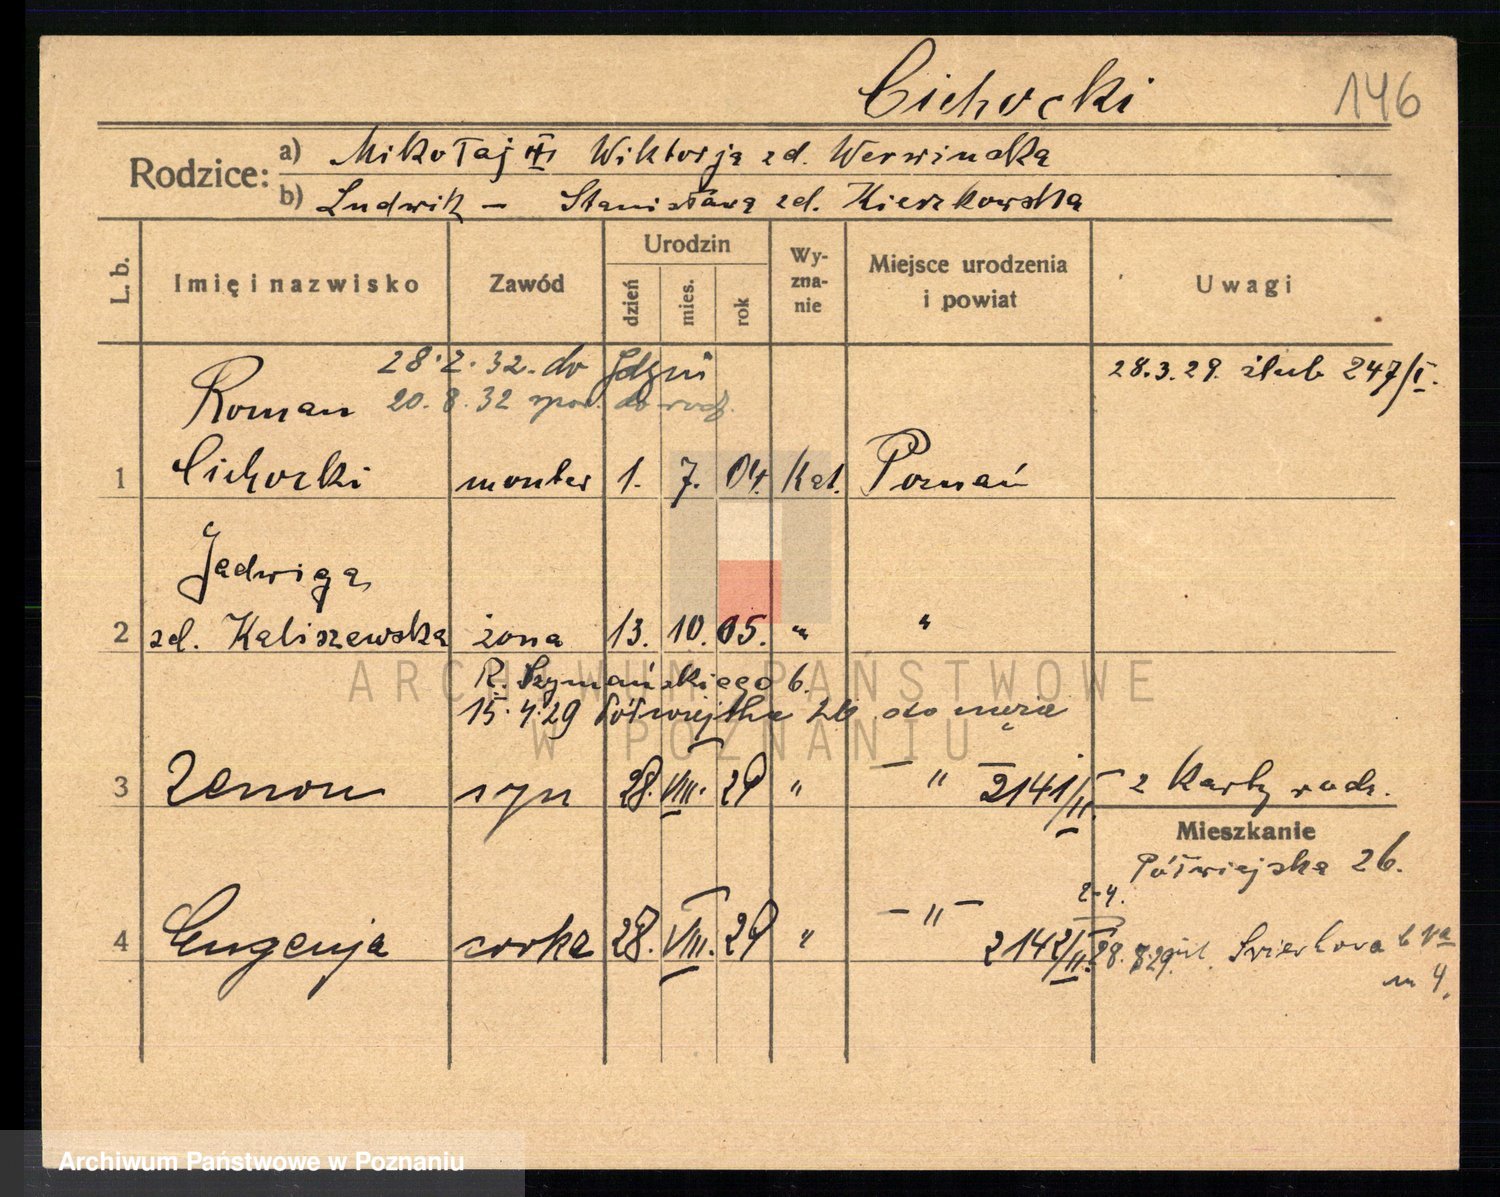 Cichocki 146
Rodzice: a) Mikołaj Wiktorja zd. Werwińska
b) Ludwik – Stanisława zd. Kierzkowska
L. b. Imię i nazwisko Zawód Urodzin dzień mies. rok Wyznanie Miejsce urodzenia i powiat Uwagi
28.2.32. do Gdyni
28.3.29. ślub 247/I.
Roman 20.8.32 do rodz.
1 Cichocki monter 1. 7. 04. Kat. Poznań
Jadwiga
2 zd. Kaliszewska żona 13. 10. 05. " "
R. Szymańskiego 6.
15.4.29 Półwiejska 26 do męża
3 Zenon syn 28. VIII. 29 " – " – 2141/II. z Karty rodz.
Mieszkanie
Półwiejska 26.
2-4.
4 Eugenja córka 28. VIII. 29 " – " – 2142/II. 28. 8.29 6
m 4.
ARCHIWUM PAŃSTWOWE
W POZNANIU
Archiwum Państwowe w Poznaniu